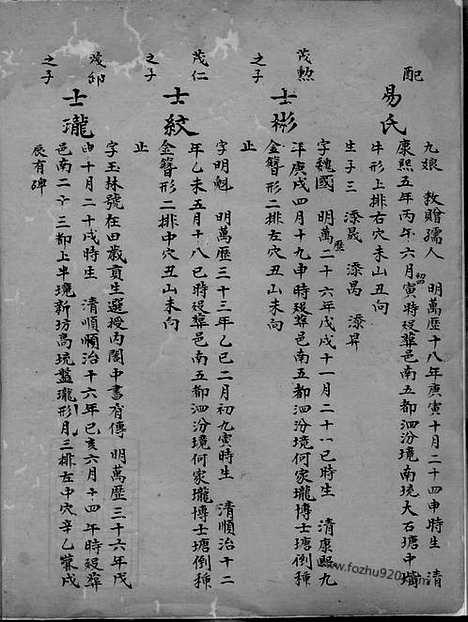 配
易氏
九娘 敕贈孺人 明萬歷十八年庚寅十月二十四申時生 清
康熙五年丙午六月初寅時歿葬邑南五都泗汾境南境大石塘中
牛形上排右穴未山丑向
生子三 添晟 添昺 添昇
茂勲
之子
士彬
字魏國 明萬歷二十六年戊戌十一月二十一巳時生 清康熙九
年庚戌四月十九申時歿葬邑南五都泗汾境何家瓏博士塘倒種
金簪形二排左穴丑山未向
止
茂仁
之子
士紋
字明魁 明萬歷三十三年乙巳二月初九寅時生 清順治十二
年乙未五月十八巳時歿葬邑南五都泗汾境何家瓏博士塘倒種
金簪形二排中穴丑山未向
止
茂卲
之子
士瓏
字玉林號在田歲貢生選授內閣中書有傳 明萬歷三十六年戊
申十月二十戌時生 清順治十六年己亥六月十四午時歿葬
邑南二十三都上半境新坊馬境藍瓏形月三排左中穴辛乙兼戌
辰有碑
www.fozhu920.com